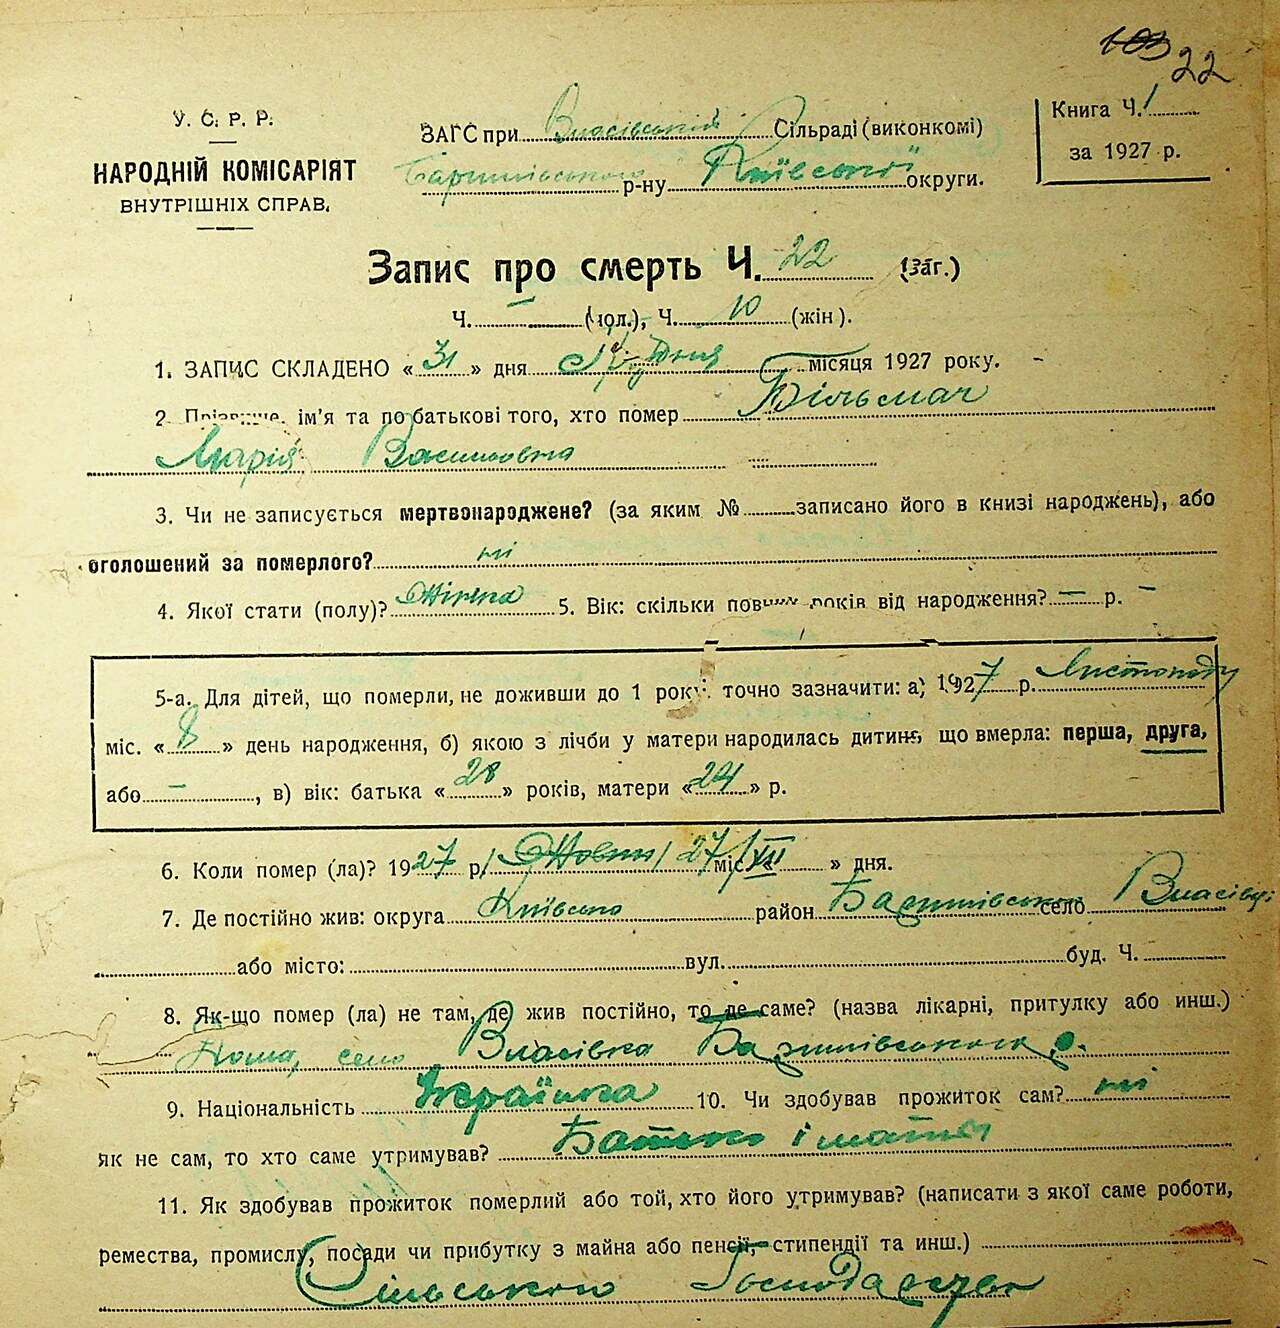 103 22
У. С. Р. Р.
НАРОДНІЙ КОМІСАРІЯТ
ВНУТРІШНІХ СПРАВ.
ЗАГС при Власівській Сільраді (виконкомі)
р-ну Київської округи.
Книга Ч. 1
за 1927 р.
Запис про смерть Ч. 22 (заг.)
Ч. — (чол.), Ч. 10 (жін).
1. ЗАПИС СКЛАДЕНО «31» дня Грудня місяця 1927 року.
2. Прізвище, ім'я та по батькові того, хто помер Більмач
Марія Василівна
3. Чи не записується мертвонароджене? (за яким № записано його в книзі народжень), або
оголошений за померлого? ні
4. Якої стати (полу)? Жіноча 5. Вік: скільки повних років від народження? — р. —
5-а. Для дітей, що померли, не доживши до 1 року, точно зазначити: а) 1927 р. Листопаду
міс. «8» день народження, б) якою з лічби у матери народилась дитина, що вмерла: перша, друга,
або —, в) вік: батька «28» років, матери «24» р.
6. Коли помер (ла)? 1927 р. 27/XII міс. « » дня.
7. Де постійно жив: округа Київська район село Власівці
або місто: вул. буд. Ч.
8. Як-що помер (ла) не там, де жив постійно, то де саме? (назва лікарні, притулку або инш.)
Дома, село Власівка
9. Національність Українка 10. Чи здобував прожиток сам? ні
як не сам, то хто саме утримував? Батько і мати
11. Як здобував прожиток померлий або той, хто його утримував? (написати з якої саме роботи,
ремества, промислу, посади чи прибутку з майна або пенсії, стипендії та инш.)
Сільського Господарства